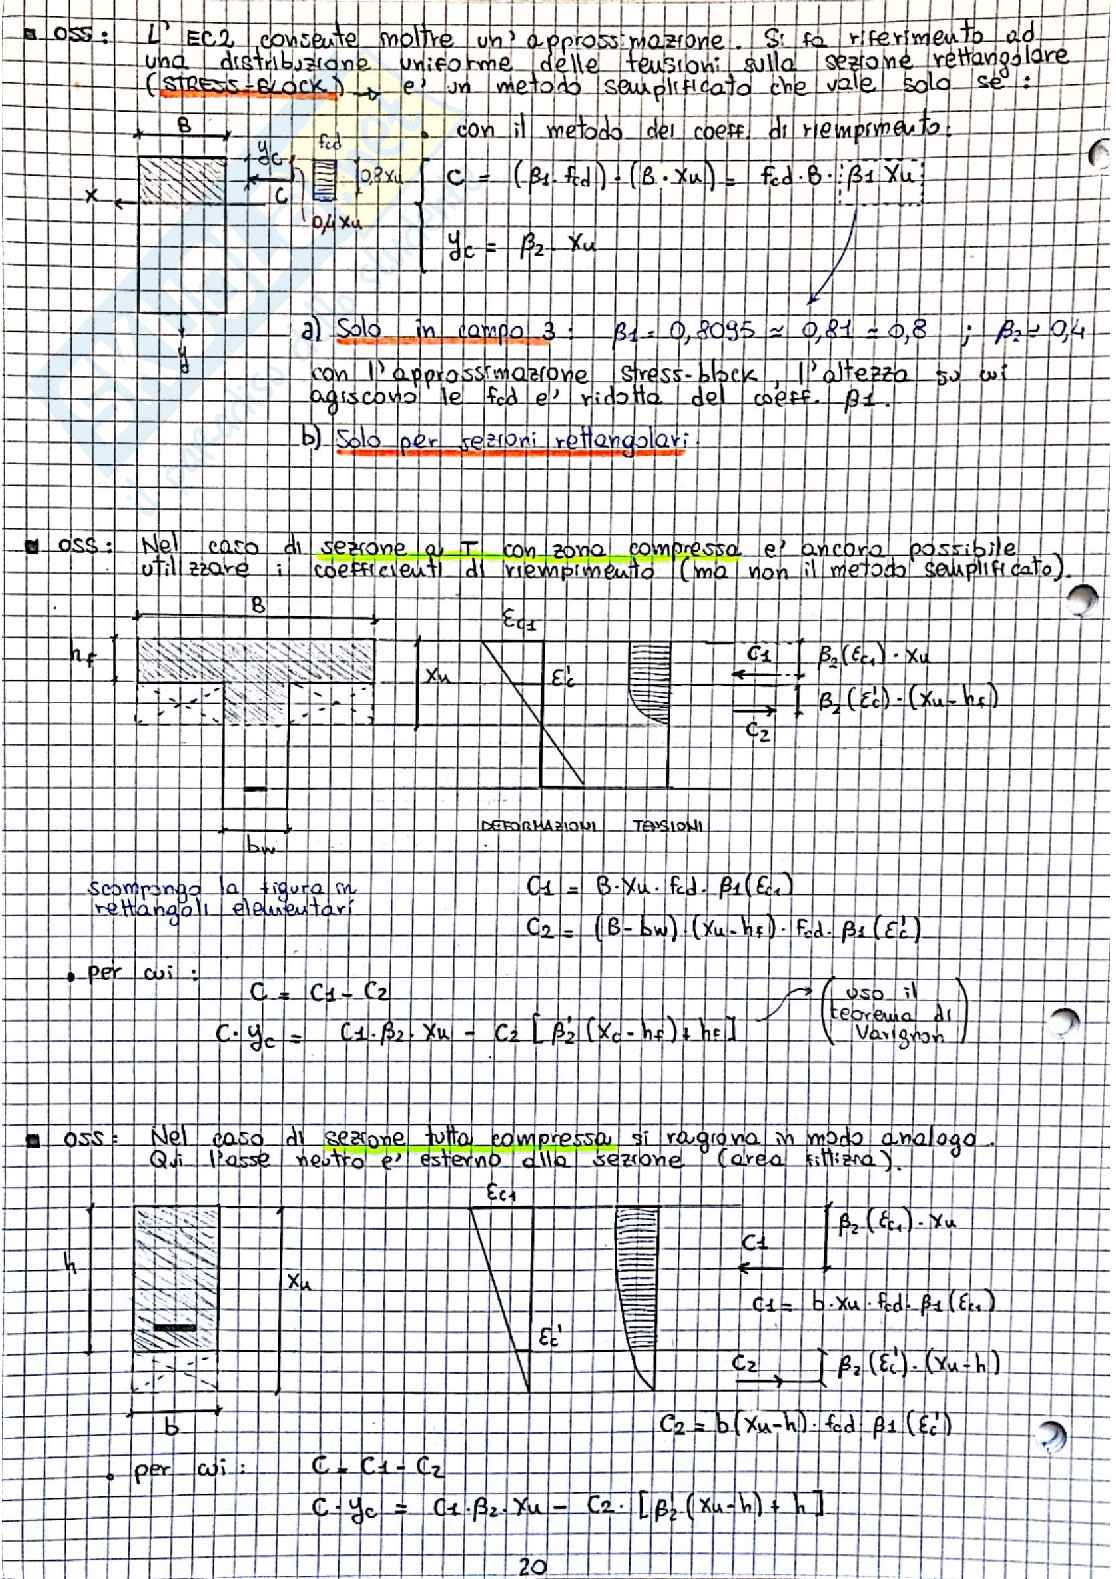 OSS: L'EC2 consente inoltre un'approssimazione. Si fa riferimento ad
una distribuzione uniforme delle tensioni sulla sezione rettangolare
(STRESS-BLOCK) → e' un metodo semplificato che vale solo se:
• con il metodo dei coeff. di riempimento:
B
yc
fcd
0,8xu
C
0,4xu
x
y
C = (β1·fcd)·(B·xu) = fcd·B·β1 xu
yc = β2·xu
a) Solo in campo 3: β1 = 0,8095 ≃ 0,81 ≃ 0,8 ; β2 ≃ 0,4
con l'approssimazione stress-block, l'altezza su cui
agiscono le fcd e' ridotta del coeff. β1.
b) Solo per sezioni rettangolari.
OSS: Nel caso di sezione a T con zona compressa e' ancora possibile
utilizzare i coefficienti di riempimento (ma non il metodo semplificato).
B
hf
xu
εc1
εc'
C1
β2(εc1)·xu
β2(εc')·(xu-hf)
C2
bw
DEFORMAZIONI TENSIONI
scompongo la figura in
rettangoli elementari
C1 = B·xu·fcd·β1(εc1)
C2 = (B-bw)·(xu-hf)·fcd·β1(εc')
• per cui:
C = C1 - C2
C·yc = C1·β2·xu - C2[β2'(xc-hf)+hf]
(uso il
teorema di
Varignon)
OSS: Nel caso di sezione tutta compressa si ragiona in modo analogo.
Qui l'asse neutro e' esterno alla sezione (area fittizia).
h
xu
εc1
εc'
b
C1
β2(εc1)·xu
C1 = b·xu·fcd·β1(εc1)
C2
β2(εc')·(xu-h)
C2 = b(xu-h)·fcd·β1(εc')
• per cui: C = C1 - C2
C·yc = C1·β2·xu - C2·[β2·(xu-h)+h]
20